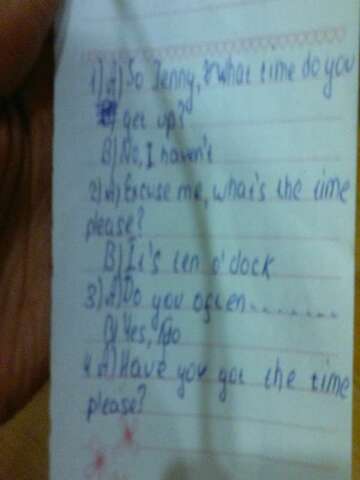 1) A) So Jenny, what time do you
get up?
B) No, I haven't
2) A) Excuse me, what's the time
please?
B) It's ten o'clock
3) A) Do you often........
B) Yes,
4. A) Have you got the time
please?